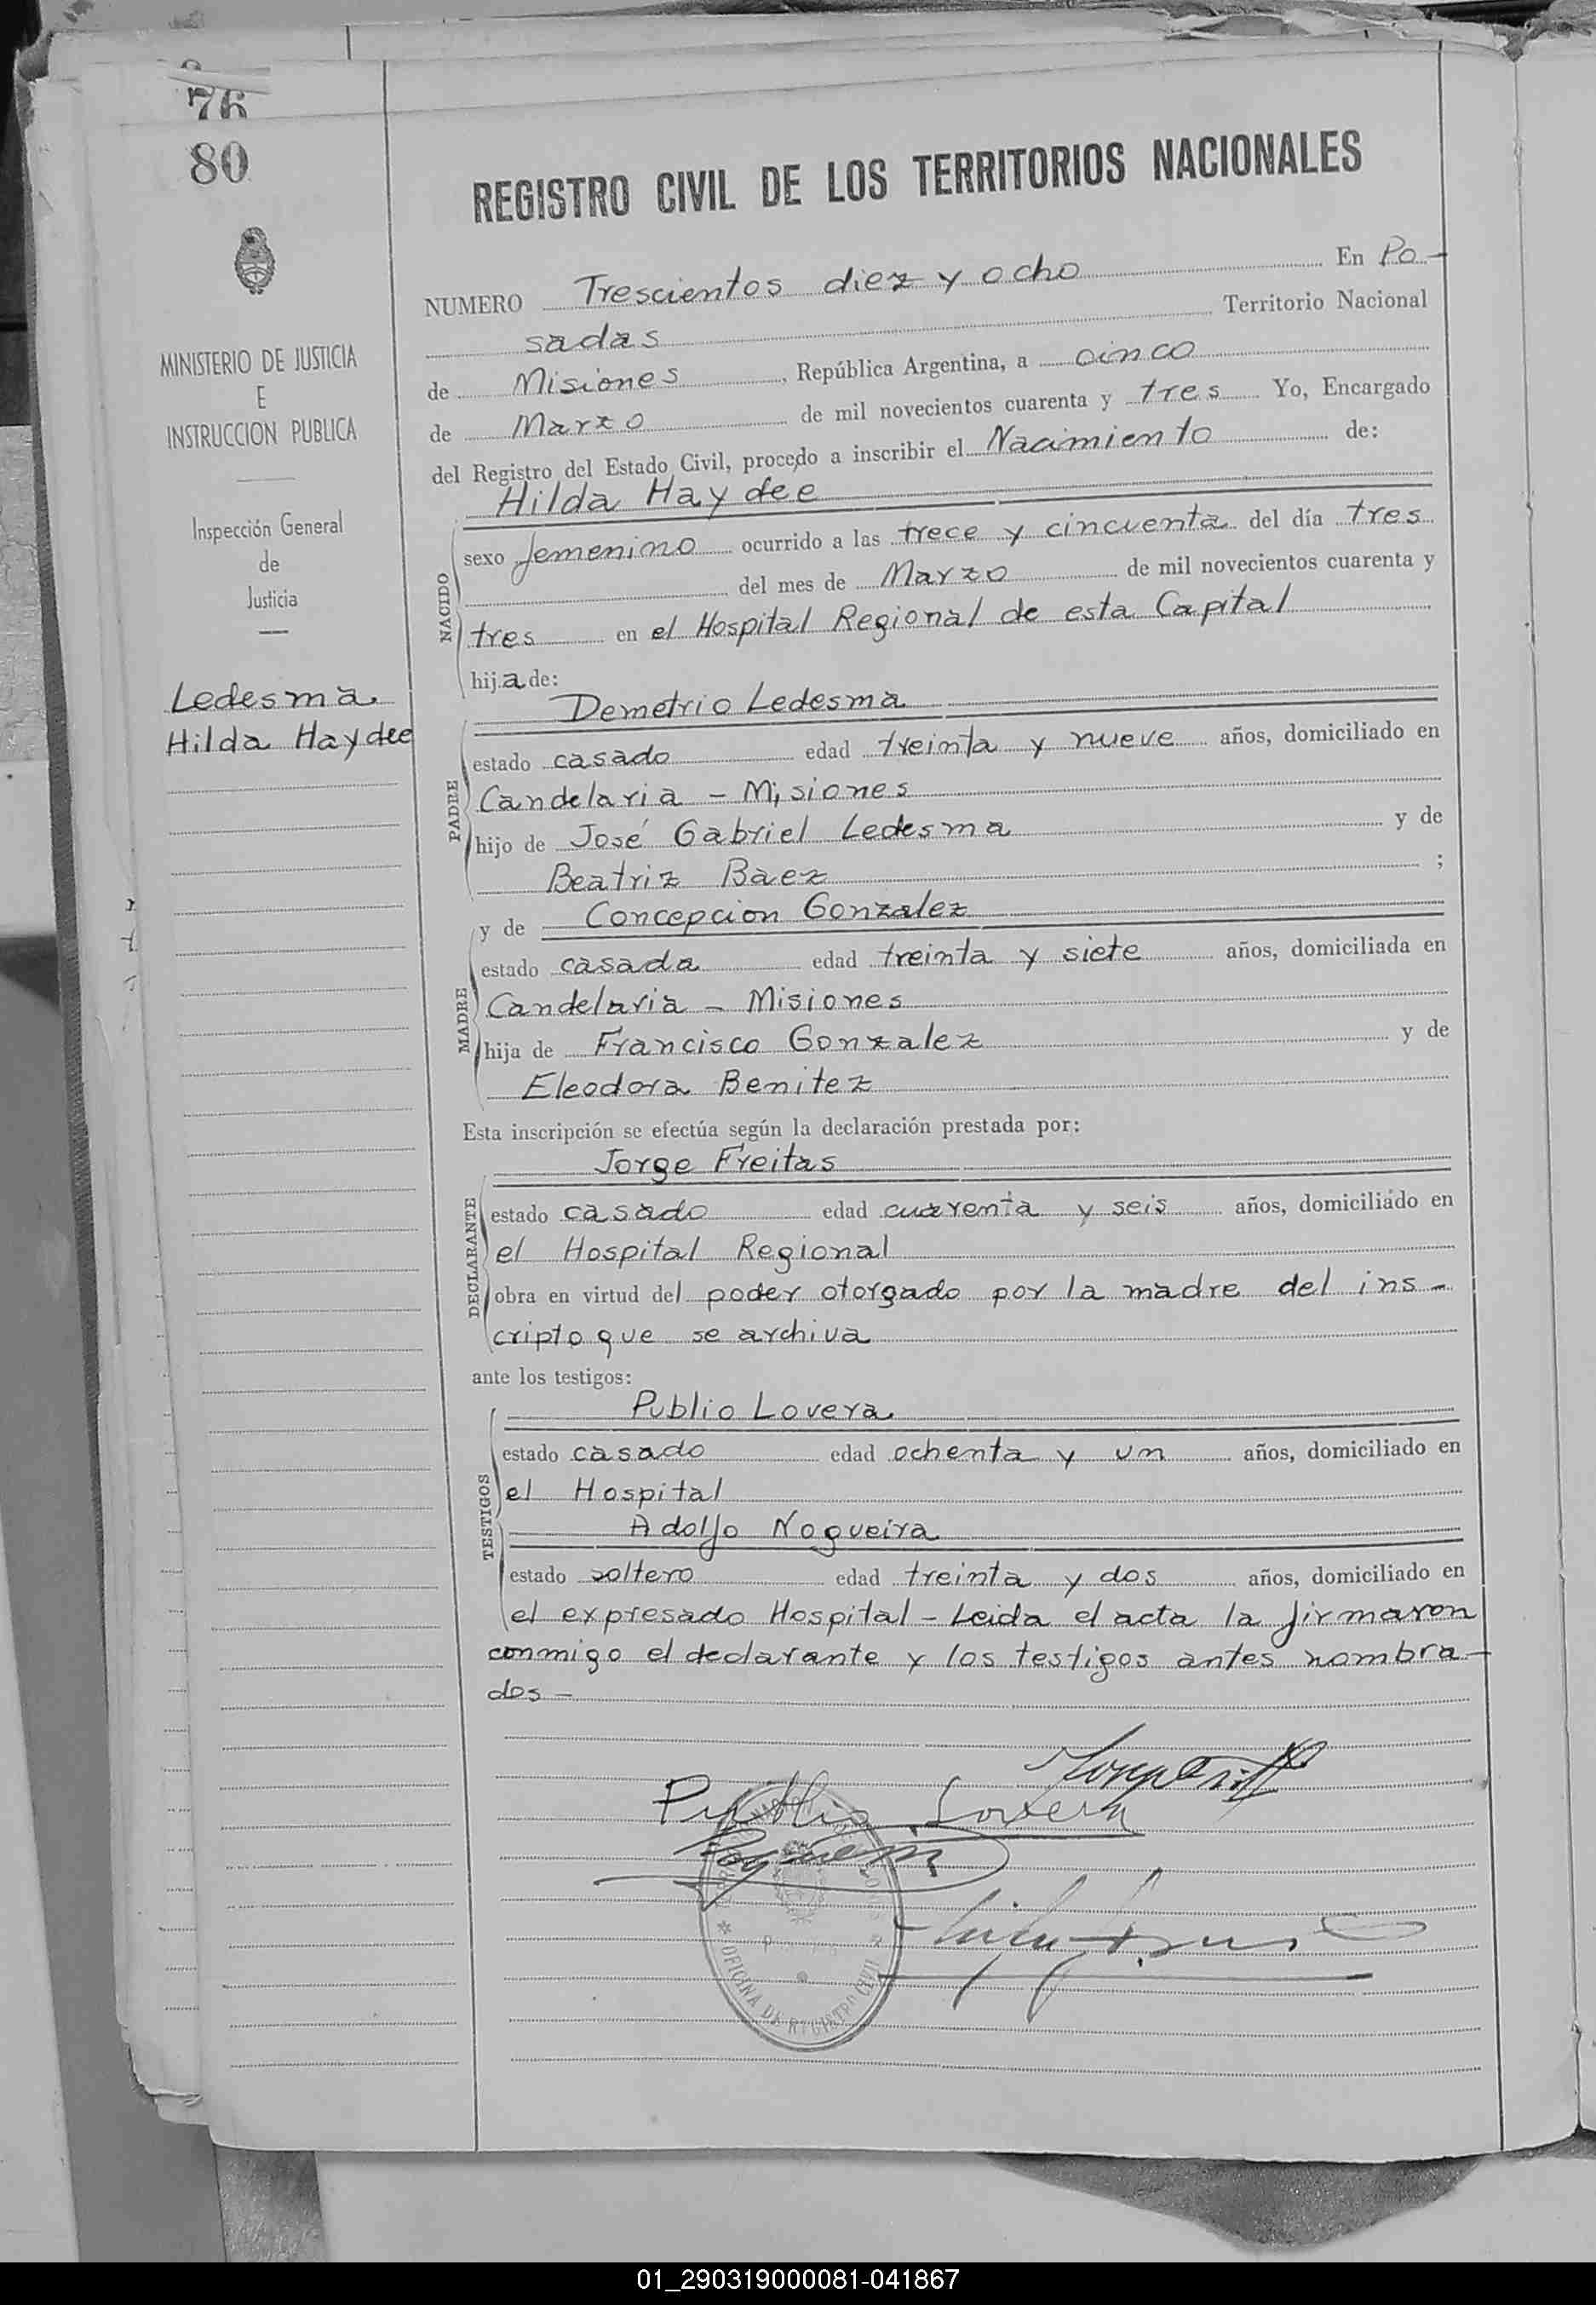 76
80
REGISTRO CIVIL DE LOS TERRITORIOS NACIONALES
MINISTERIO DE JUSTICIA
E
INSTRUCCION PUBLICA
Inspección General
de
Justicia
Ledesma
Hilda Haydee
NUMERO Trescientos diez y ocho En Po-
sadas Territorio Nacional
de Misiones, República Argentina, a cinco
de Marzo de mil novecientos cuarenta y tres Yo, Encargado
del Registro del Estado Civil, procedo a inscribir el Nacimiento de:
Hilda Haydee
NACIDO
sexo femenino ocurrido a las trece y cincuenta del día tres
del mes de Marzo de mil novecientos cuarenta y
tres en el Hospital Regional de esta Capital
hija de:
Demetrio Ledesma
PADRE
estado casado edad treinta y nueve años, domiciliado en
Candelaria - Misiones
hijo de José Gabriel Ledesma y de
Beatriz Baez ;
y de Concepcion Gonzalez
MADRE
estado casada edad treinta y siete años, domiciliada en
Candelaria - Misiones
hija de Francisco Gonzalez y de
Eleodora Benitez
Esta inscripción se efectúa según la declaración prestada por:
Jorge Freitas
DECLARANTE
estado casado edad cuarenta y seis años, domiciliado en
el Hospital Regional
obra en virtud del poder otorgado por la madre del ins-
cripto que se archiva
ante los testigos:
Publio Lovera
TESTIGOS
estado casado edad ochenta y un años, domiciliado en
el Hospital
Adolfo Nogueira
estado soltero edad treinta y dos años, domiciliado en
el expresado Hospital - Leida el acta la firmaron
conmigo el declarante y los testigos antes nombra-
dos -
Publio Lovera
Nogueira
OFICINA DE REGISTRO CIVIL
01_290319000081-041867